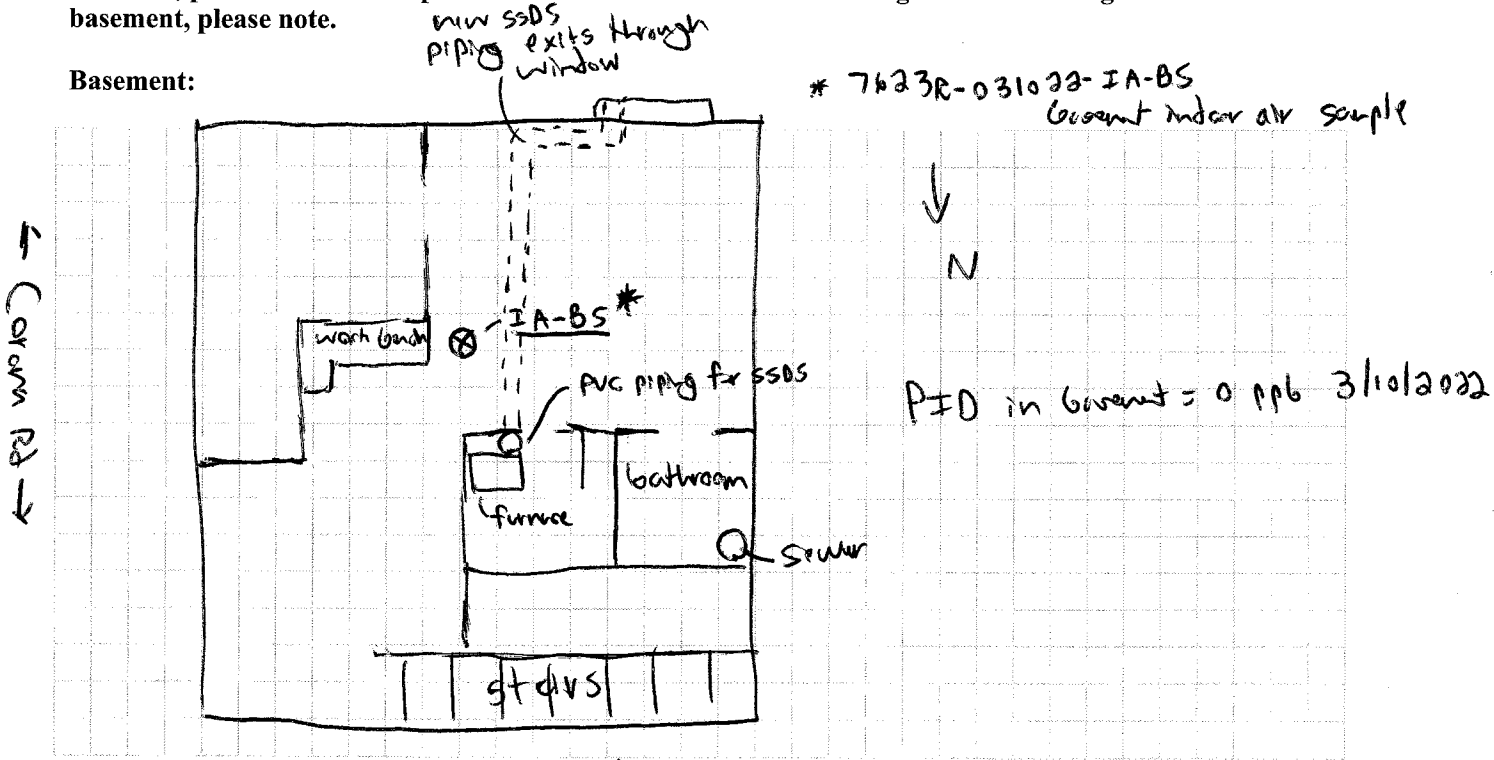 basement, please note.
new SSDS
piping exits through
window
Basement:
* 7623R-031022-IA-BS
basement indoor air sample
N
← Corann Rd →
IA-BS *
work bench
PVC piping for SSDS
PID in basement = 0 ppb 3/10/2022
bathroom
furnace
sewer
stairs